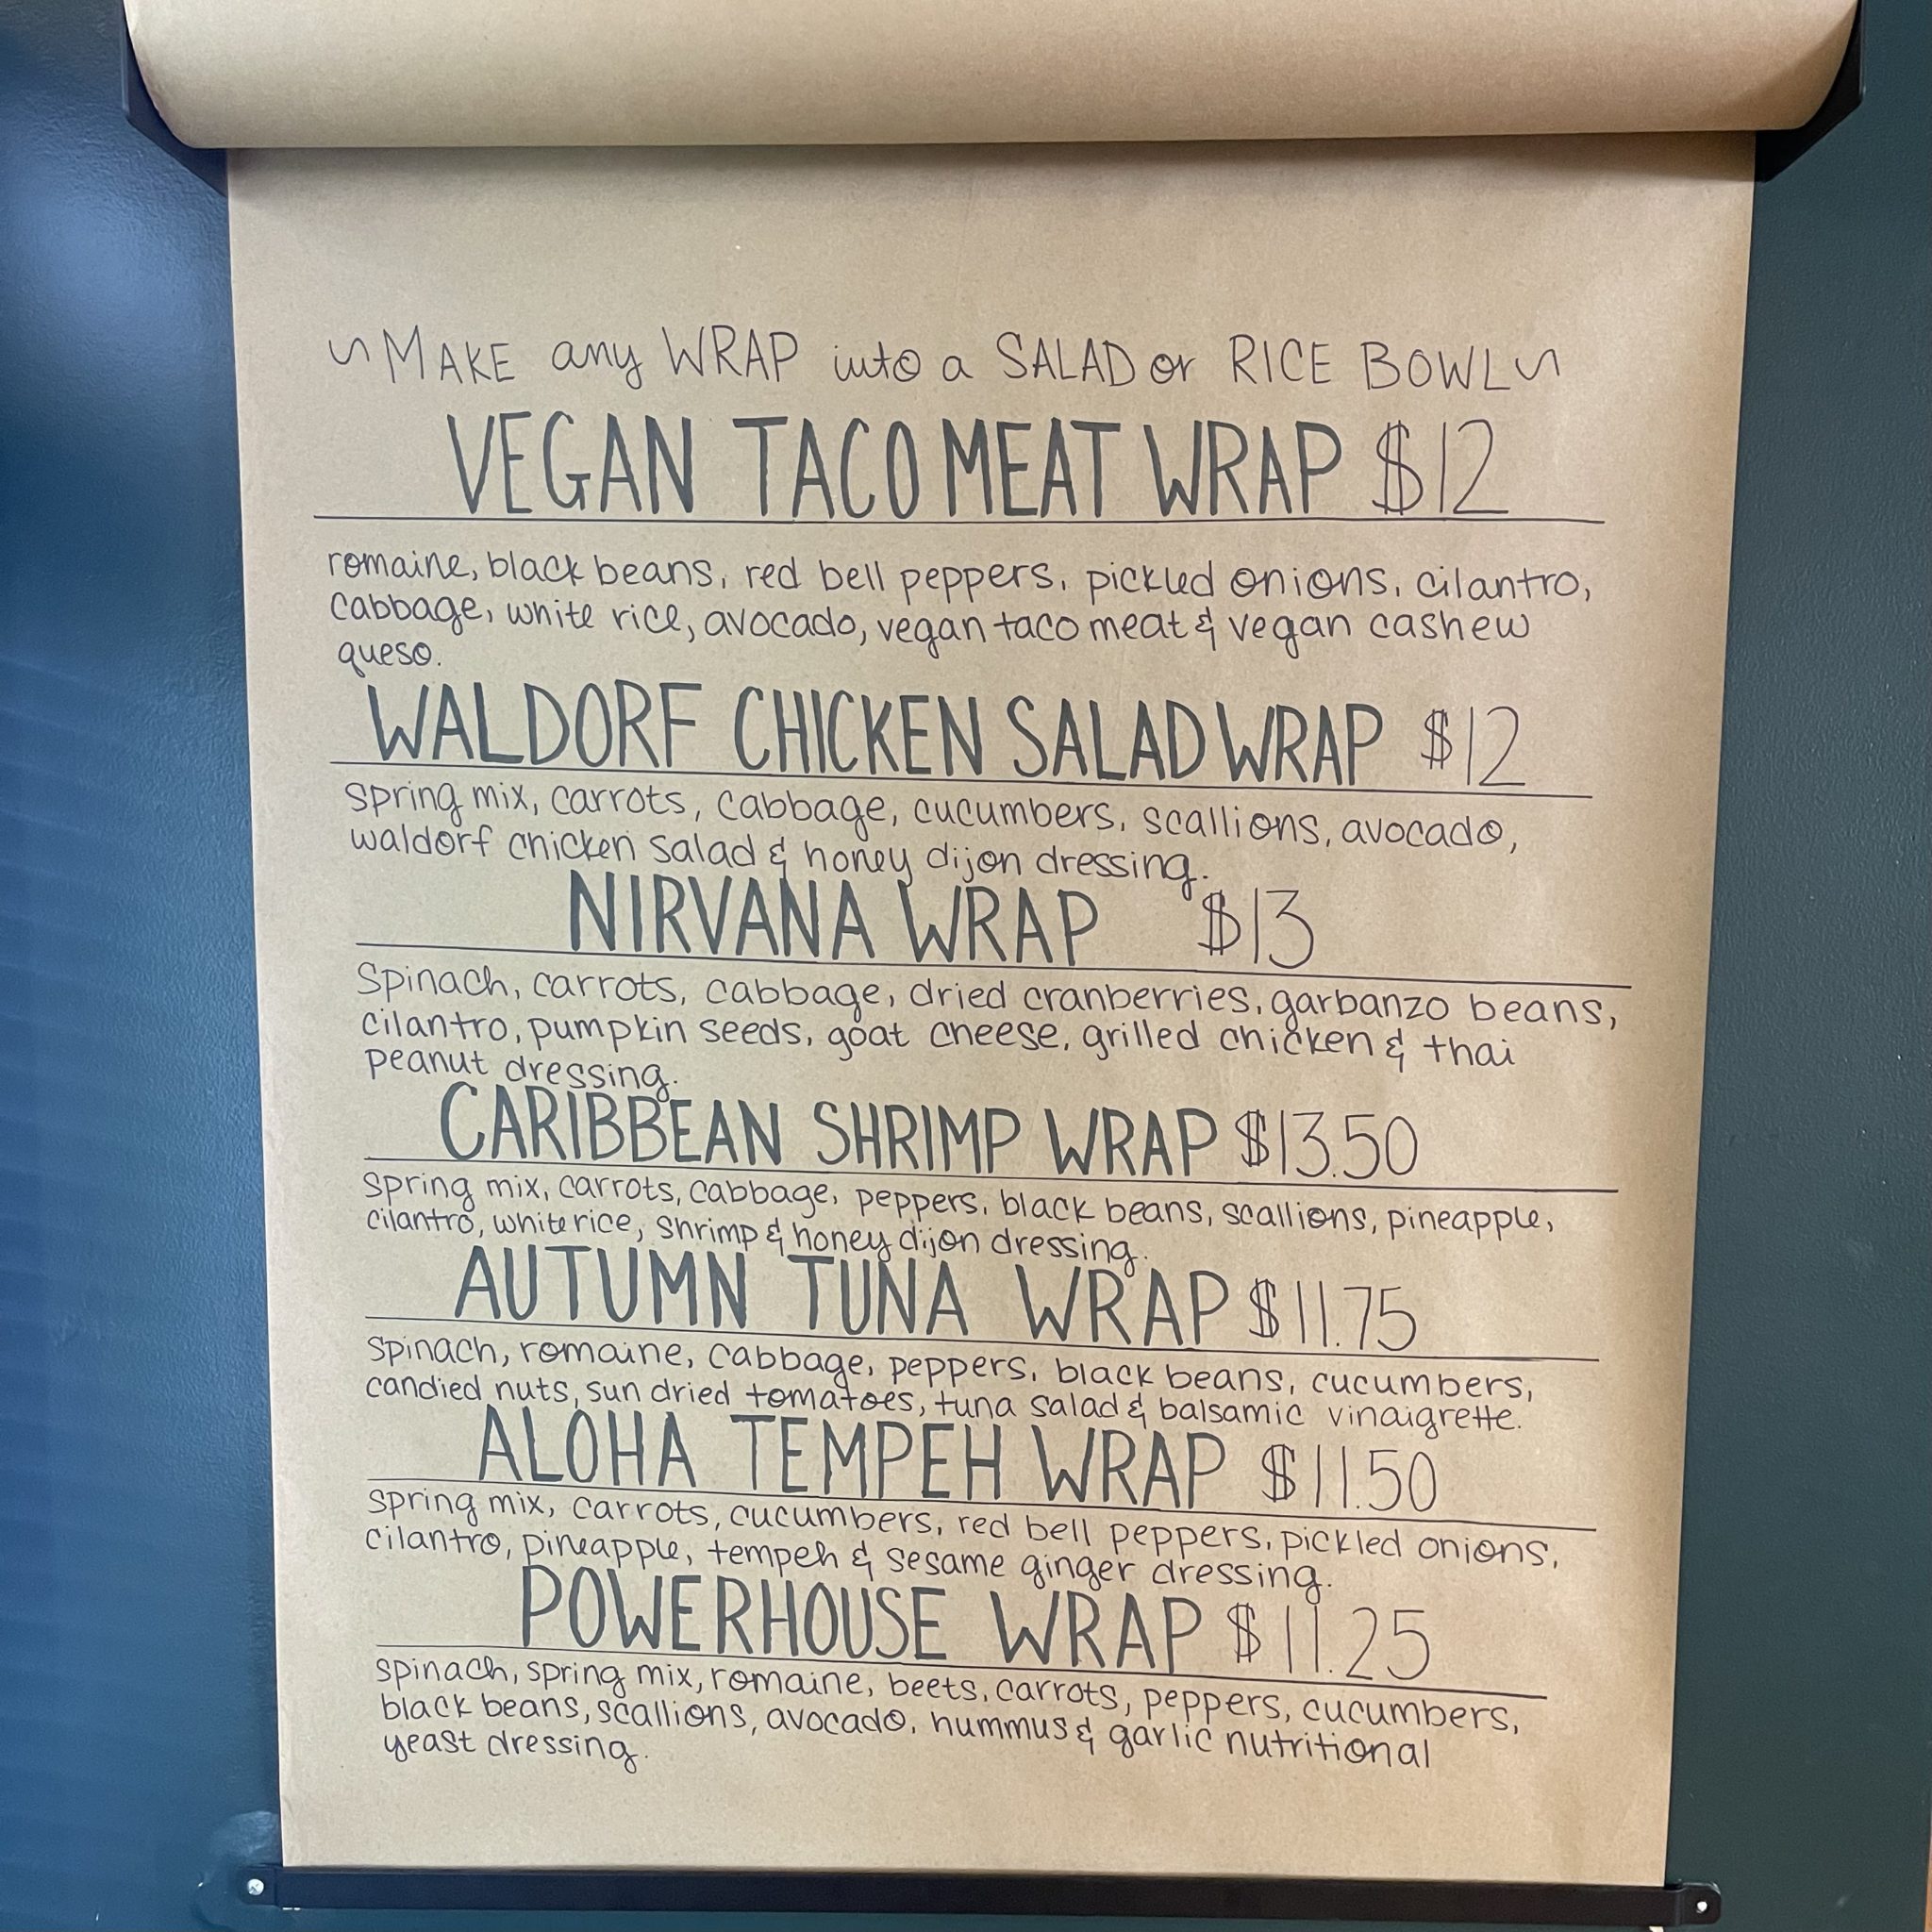 ~MAKE any WRAP into a SALAD or RICE BOWL~
VEGAN TACO MEAT WRAP $12
romaine, black beans, red bell peppers, pickled onions, cilantro,
cabbage, white rice, avocado, vegan taco meat & vegan cashew
queso.
WALDORF CHICKEN SALAD WRAP $12
spring mix, carrots, cabbage, cucumbers, scallions, avocado,
waldorf chicken salad & honey dijon dressing.
NIRVANA WRAP $13
Spinach, carrots, cabbage, dried cranberries, garbanzo beans,
cilantro, pumpkin seeds, goat cheese, grilled chicken & thai
peanut dressing.
CARIBBEAN SHRIMP WRAP $13.50
spring mix, carrots, cabbage, peppers, black beans, scallions, pineapple,
cilantro, white rice, shrimp & honey dijon dressing.
AUTUMN TUNA WRAP $11.75
spinach, romaine, cabbage, peppers, black beans, cucumbers,
candied nuts, sun dried tomatoes, tuna salad & balsamic vinaigrette.
ALOHA TEMPEH WRAP $11.50
spring mix, carrots, cucumbers, red bell peppers, pickled onions,
cilantro, pineapple, tempeh & sesame ginger dressing.
POWERHOUSE WRAP $11.25
spinach, spring mix, romaine, beets, carrots, peppers, cucumbers,
black beans, scallions, avocado, hummus & garlic nutritional
yeast dressing.